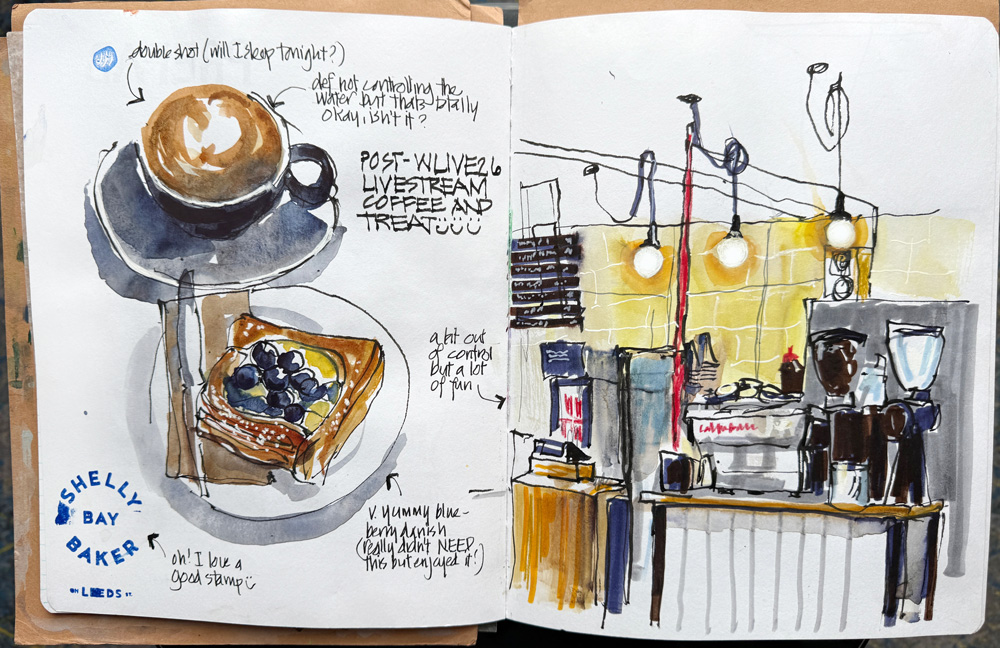 double shot (will I sleep tonight?)
def not controlling the
water but thats totally
okay, isn't it?
POST-WLIVE26
LIVESTREAM
COFFEE AND
TREAT
a bit out
of control
but a lot
of fun
v. yummy blue-
berry danish
(really didn't NEED
this but enjoyed it!)
SHELLY
BAY
BAKER
ON LEEDS ST.
oh! I love a
good stamp